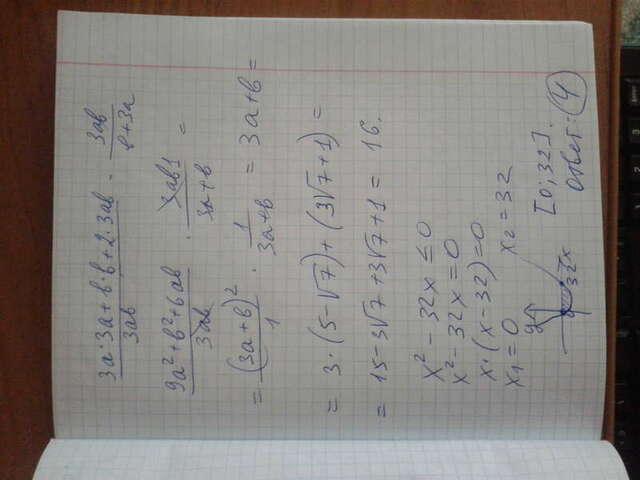 (3a·3a + b·b + 2·3ab)/(3ab) · (3ab)/(b+3a)
(9a² + b² + 6ab)/(3ab) · (3ab1)/(3a+b) =
= (3a+b)²/1 · 1/(3a+b) = 3a+b =
= 3·(5-√7) + (3√7+1) =
= 15-3√7+3√7+1 = 16.
x² - 32x ≤ 0
x² - 32x = 0
x·(x-32) = 0
x₁ = 0 x₂ = 32
y 0 32 x [0; 32]. Ответ: 4